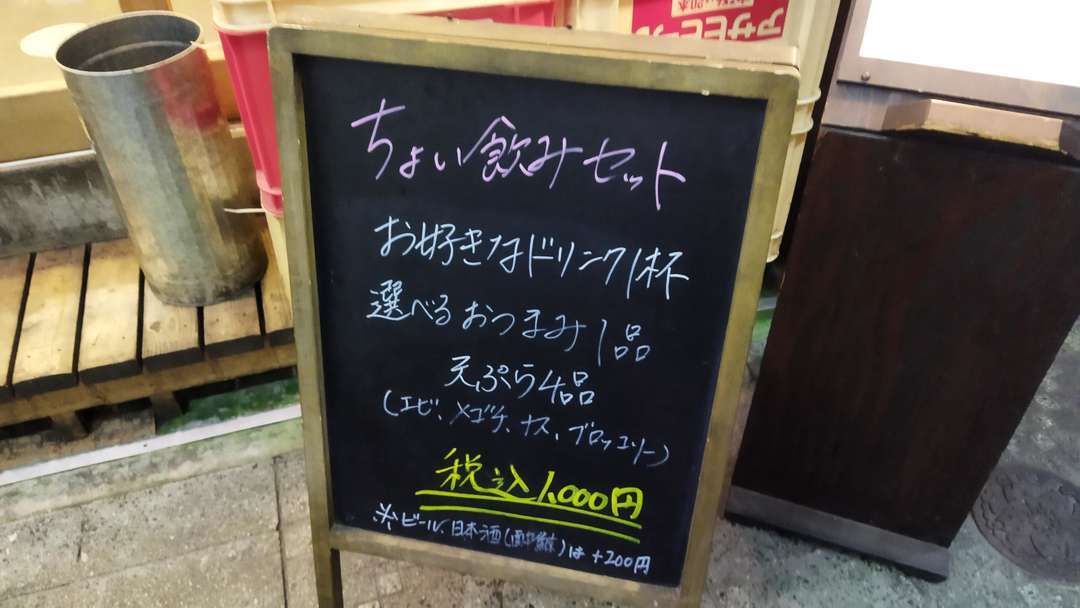 アサヒビ
ちょい飲みセット
お好きなドリンク1杯
選べるおつまみ1品
天ぷら4品
(エビ、メゴチ、ナス、ブロッコリー)
税込1,000円
※ビール、日本酒(酉与右衛門)は+200円